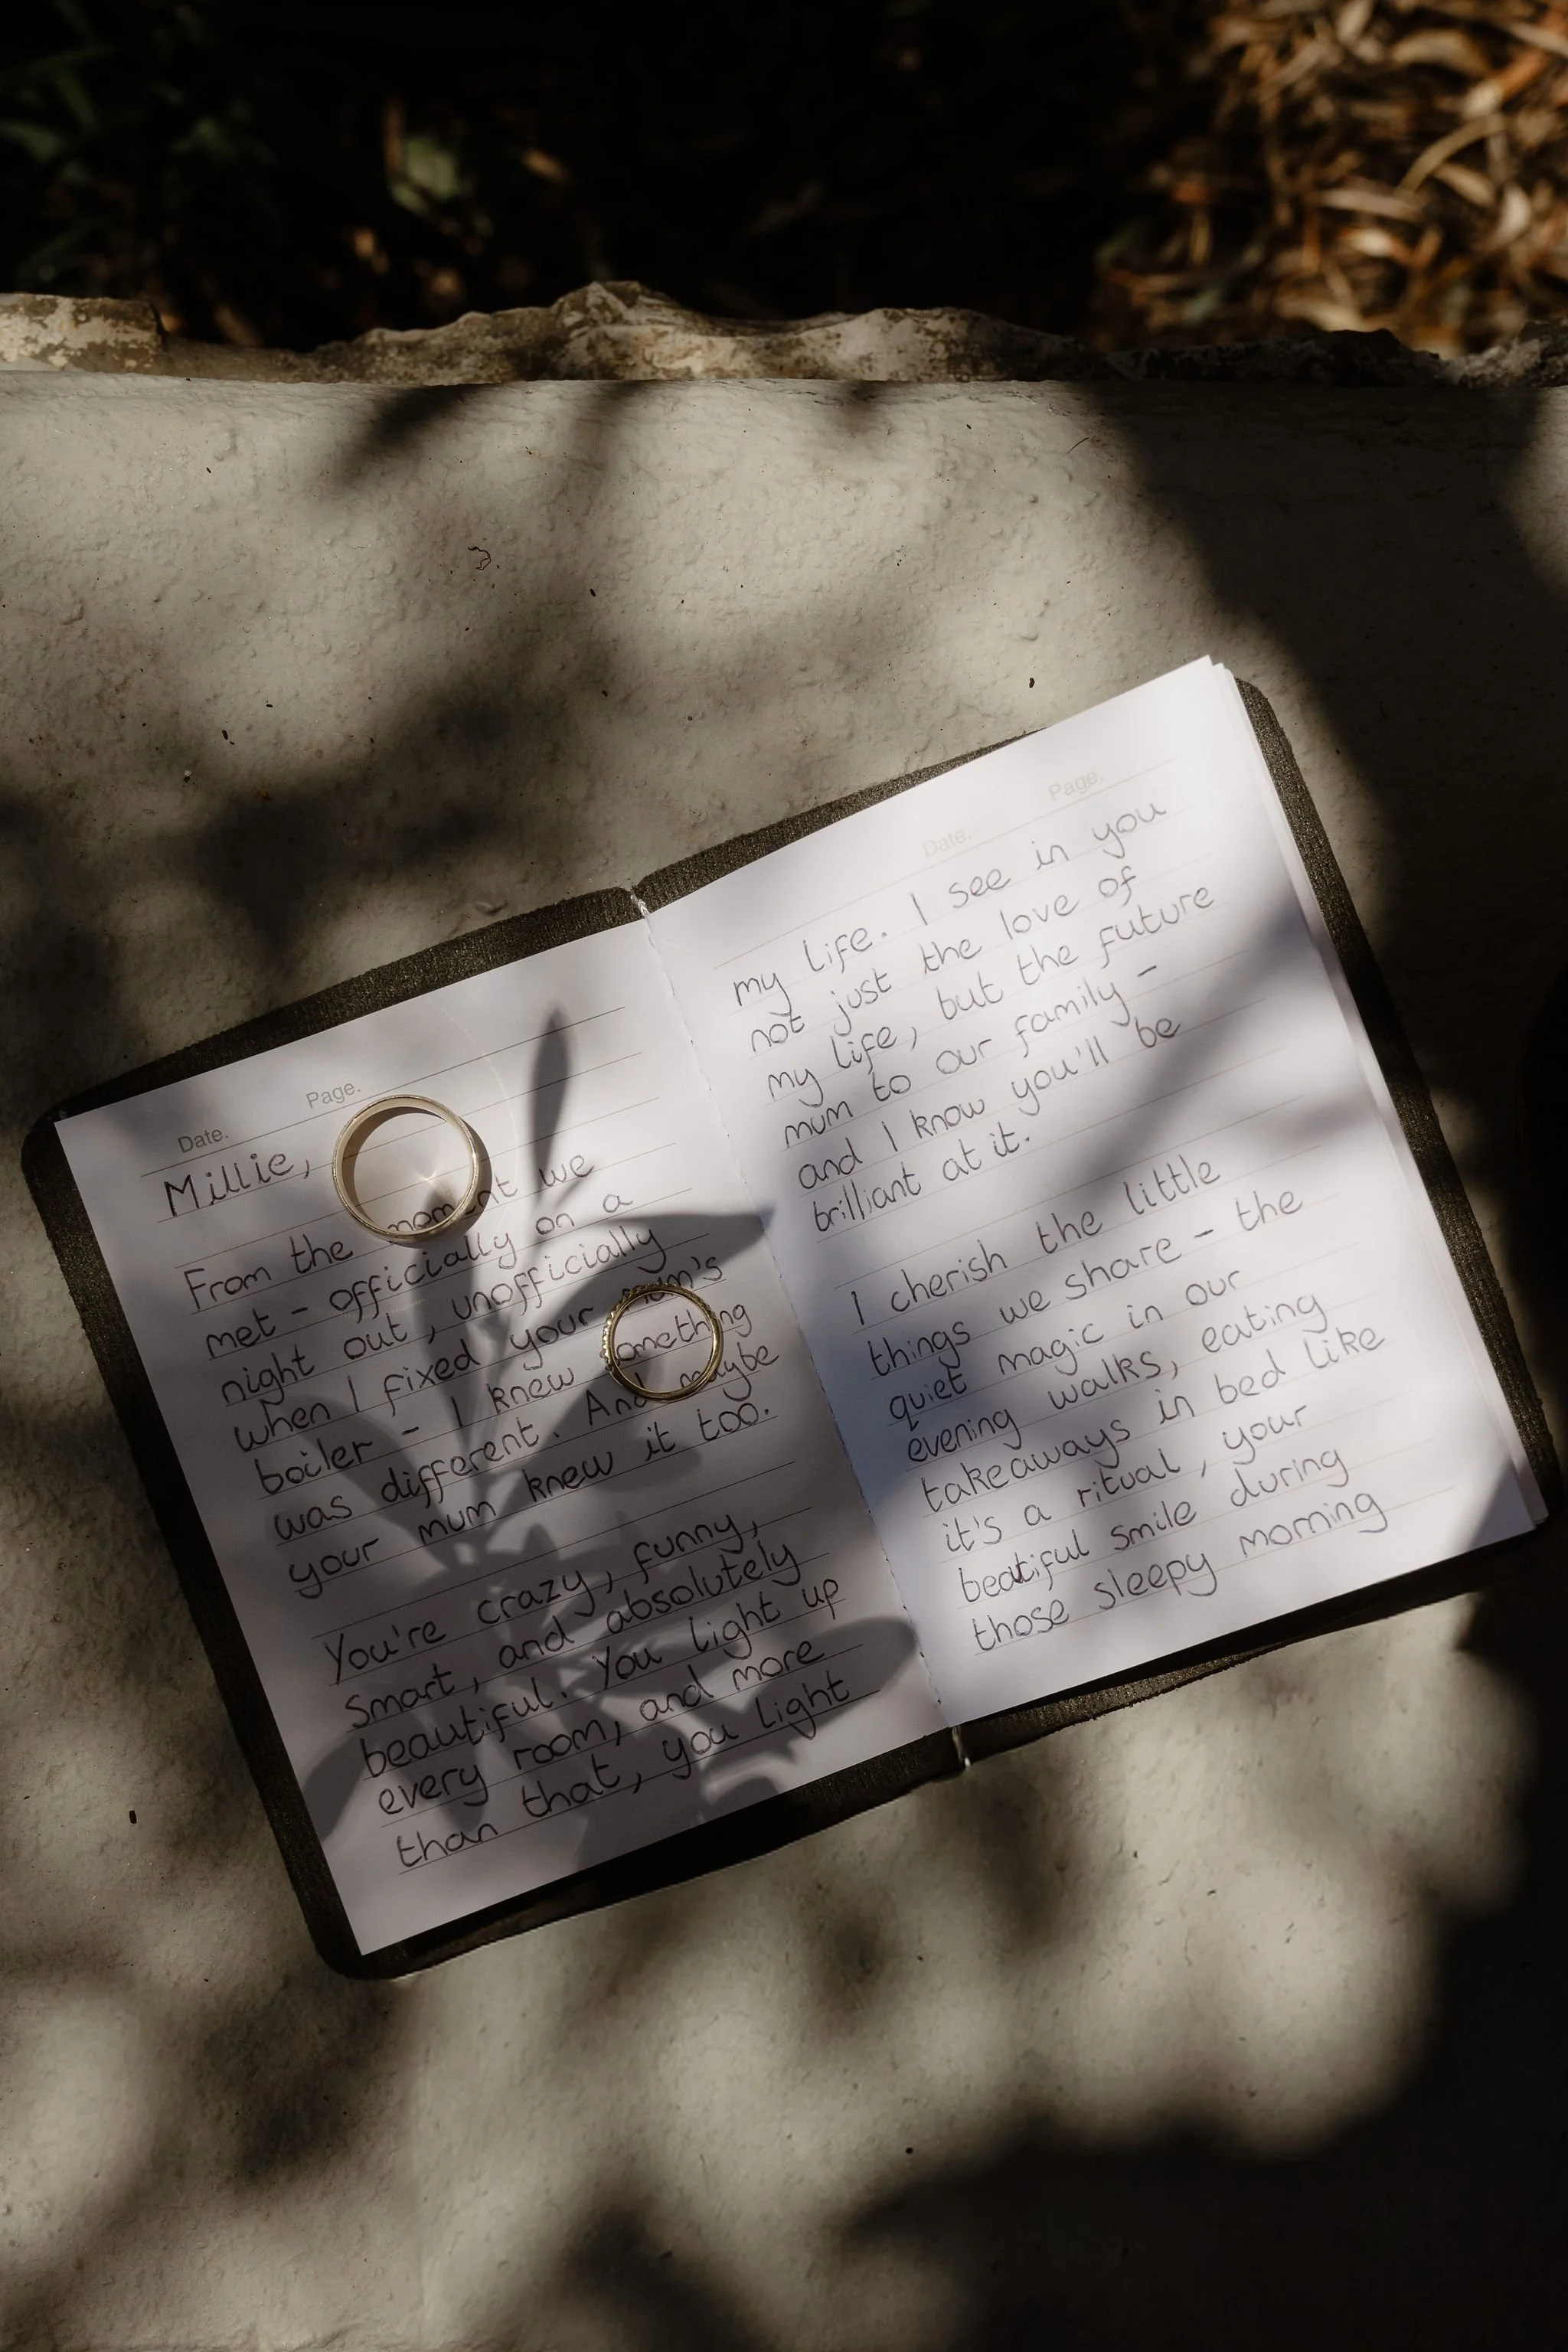 Date. Page.
Millie,
From the moment we
met - officially on a
night out, unofficially
when I fixed your mum's
boiler - I knew something
was different. And maybe
your mum knew it too.
You're crazy, funny,
smart, and absolutely
beautiful. You light up
every room, and more
than that, you light
Date. Page.
my life. I see in you
not just the love of
my life, but the future
mum to our family -
and I know you'll be
brilliant at it.
I cherish the little
things we share - the
quiet magic in our
evening walks, eating
takeaways in bed like
it's a ritual, your
beatiful smile during
those sleepy morning